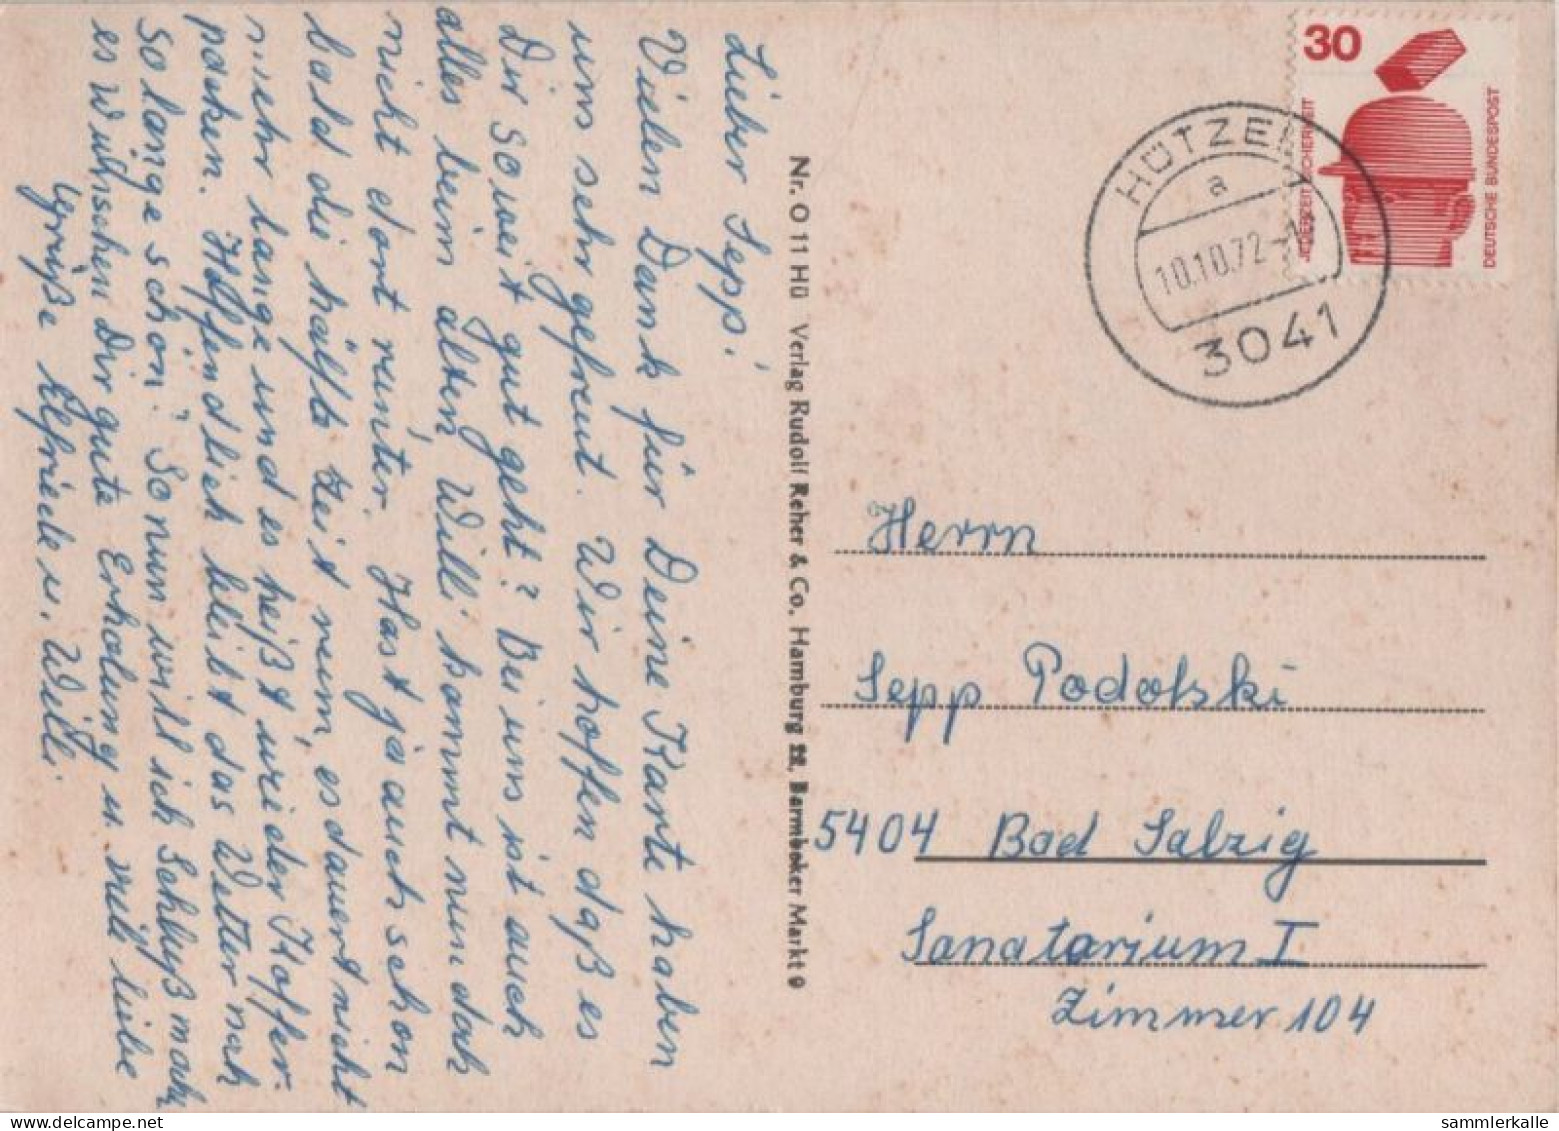 Lieber Sepp!
Vielen Dank für Deine Karte haben
uns sehr gefreut. Wir hoffen daß es
Dir soweit gut geht? Bei uns ist auch
alles beim alten, Willi kommt nun doch
nicht dort runter. Hast ja auch schon
bald die hälfte Zeit rum, es dauert nicht
mehr lange und es heißt wieder Koffer-
packen. Hoffendlich bleibt das Wetter noch
so lange schön. So nun will ich Schluß machen
es wünschen Dir gute Erholung u. viele liebe
Grüße Elfriede u. Willi
Nr. O 11 Hü Verlag Rudolf Reher & Co. Hamburg 22, Barmbeker Markt 9
30
JEDERZEIT SICHERHEIT
DEUTSCHE BUNDESPOST
HÜTZEL
a
10.10.72
3041
Herrn
Sepp Podolski
5404 Bad Salzig
Sanatorium I
Zimmer 104
sammlerkalle